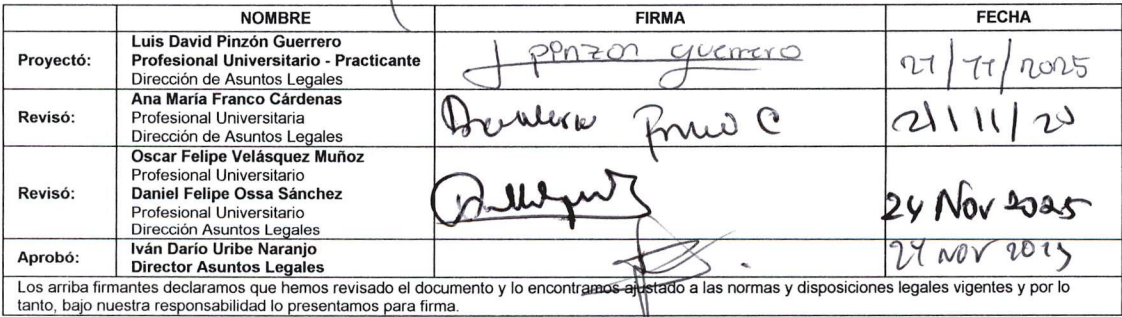 NOMBRE FIRMA FECHA
Proyectó: Luis David Pinzón Guerrero
Profesional Universitario - Practicante
Dirección de Asuntos Legales
pinzon guerrero 21/11/2025
Revisó: Ana María Franco Cárdenas
Profesional Universitaria
Dirección de Asuntos Legales
21/11/20
Revisó: Oscar Felipe Velásquez Muñoz
Profesional Universitario
Daniel Felipe Ossa Sánchez
Profesional Universitario
Dirección Asuntos Legales
24 Nov 2025
Aprobó: Iván Darío Uribe Naranjo
Director Asuntos Legales
24 NOV 2025
Los arriba firmantes declaramos que hemos revisado el documento y lo encontramos ajustado a las normas y disposiciones legales vigentes y por lo
tanto, bajo nuestra responsabilidad lo presentamos para firma.